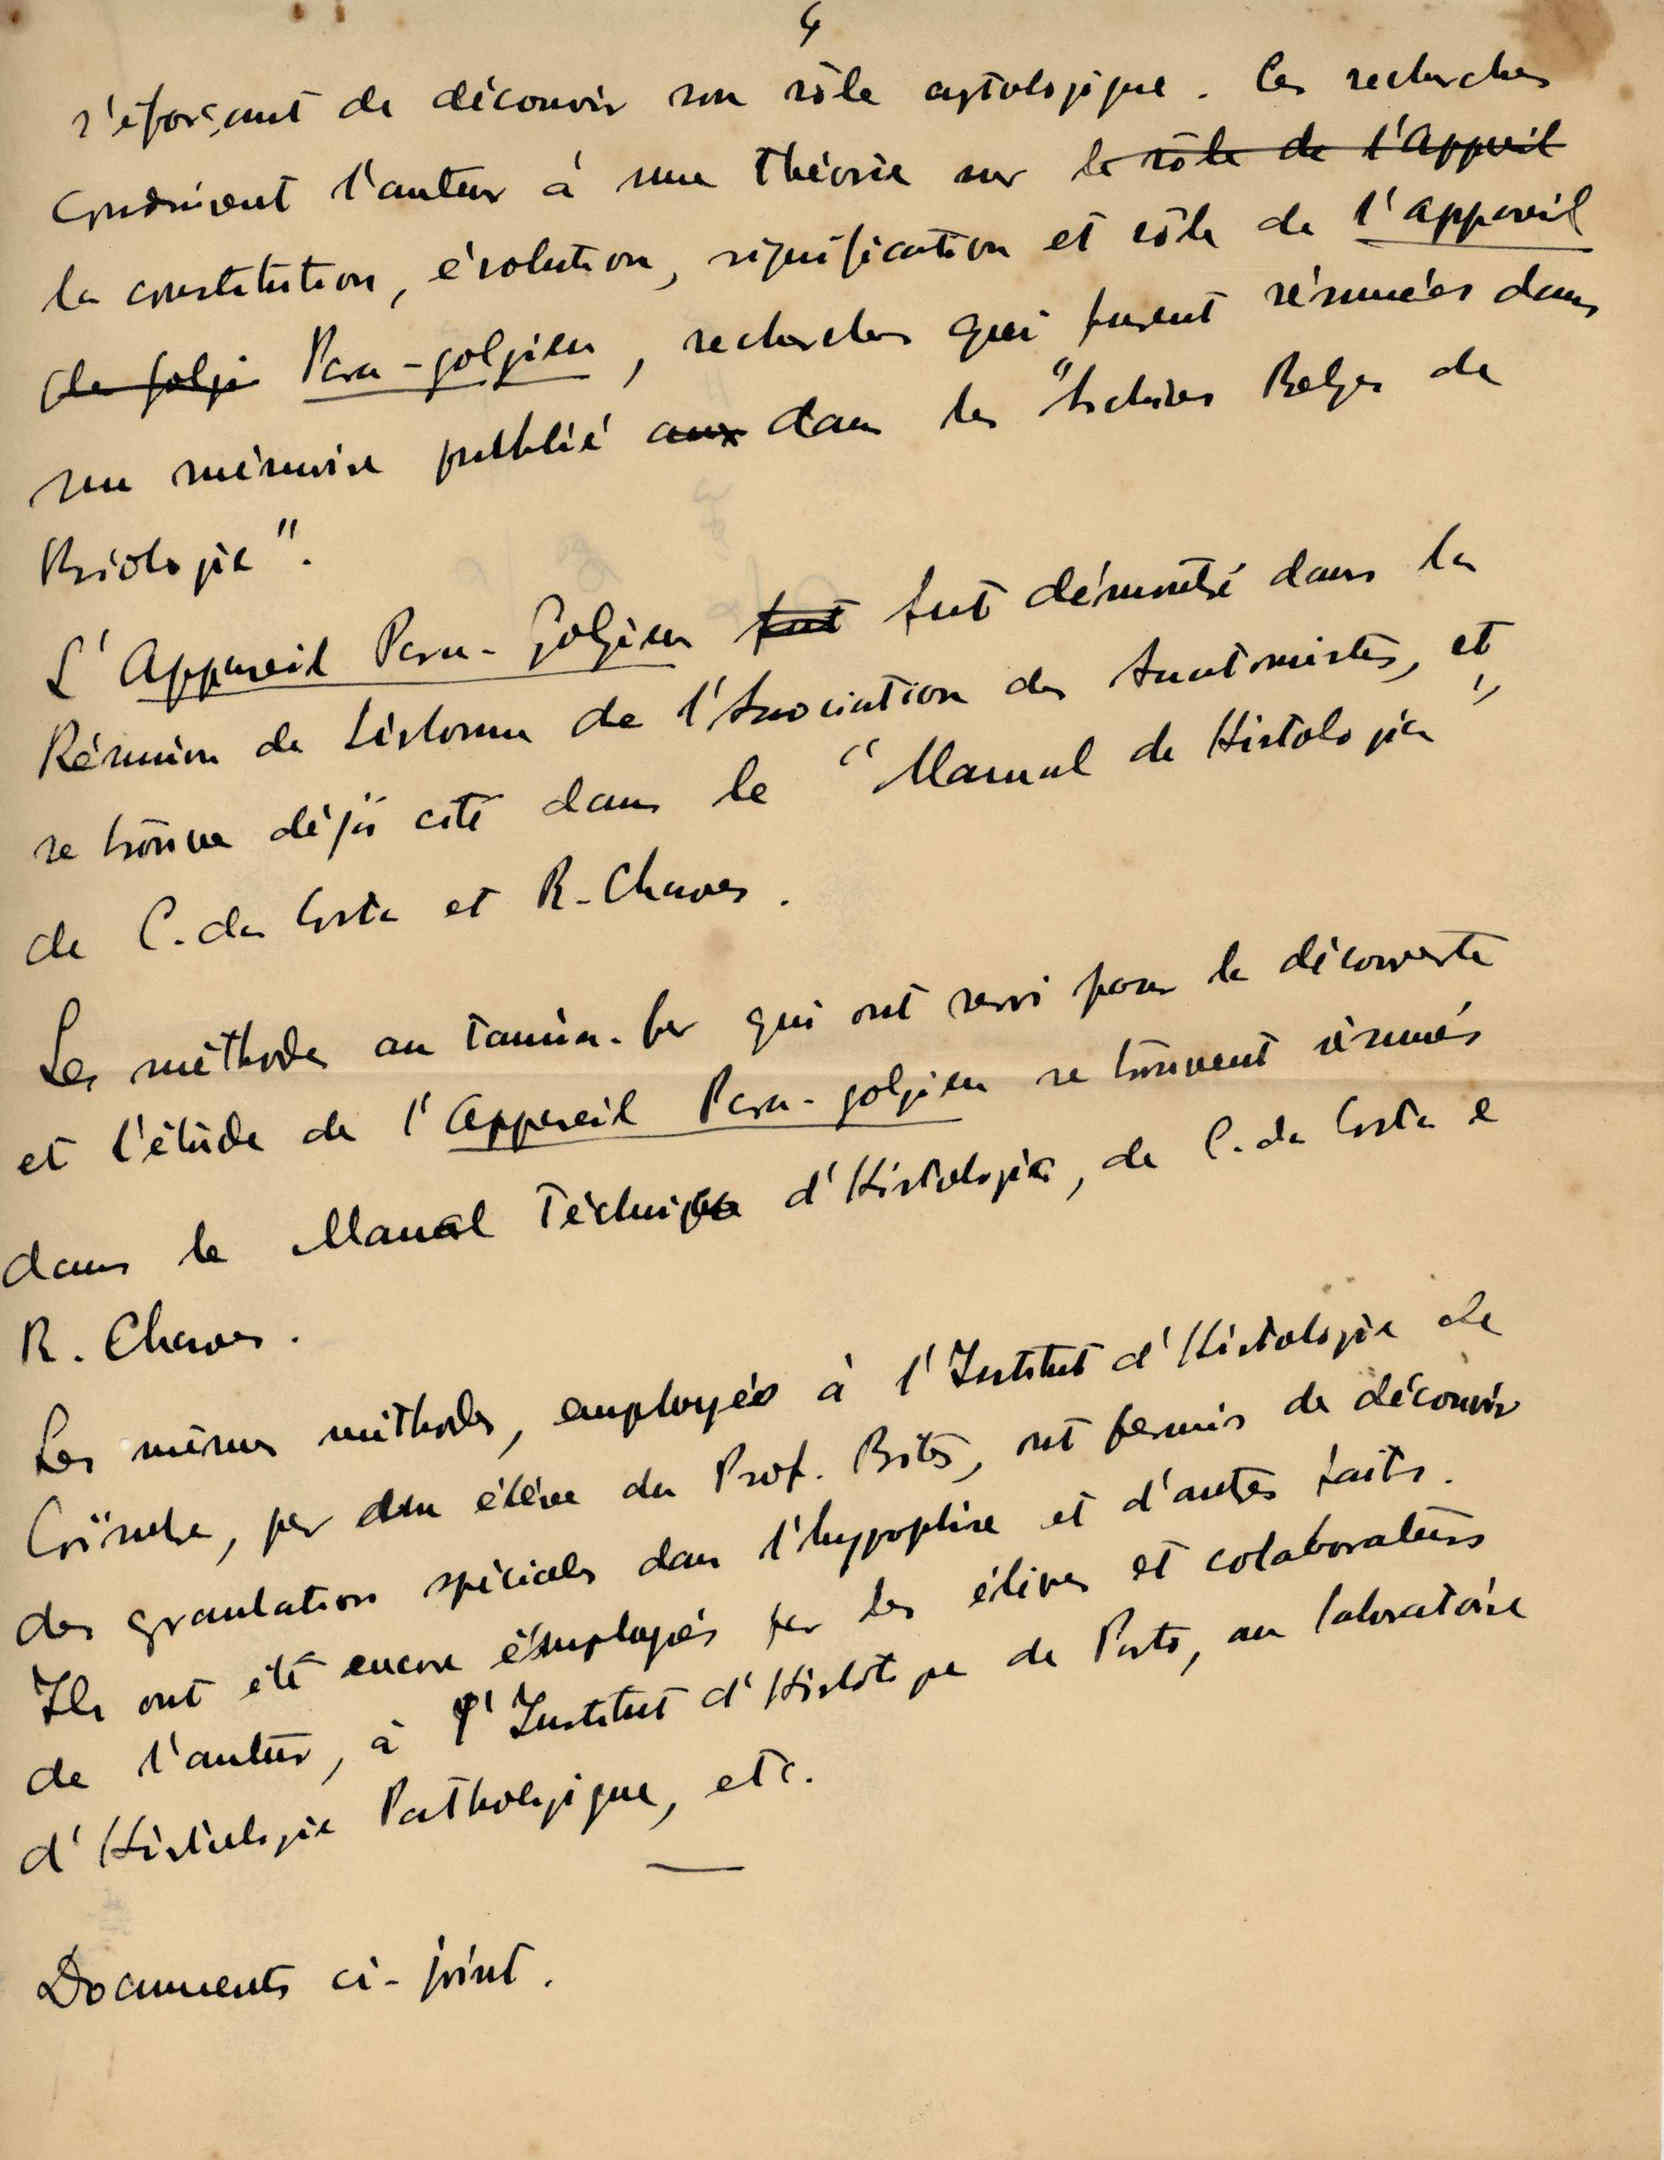 4
s'éforçant de découvrir son rôle cytologique. Ces recherches
conduisent l'auteur à une théorie sur le rôle de l'Appareil
la constitution, évolution, signification et rôle de l'appareil
de Golgi Para-golgien, recherches qui furent résumées dans
un mémoire publié aux dans les "Archives Belges de
Biologie".
L'Appareil Para-Golgien fut fut démontré dans la
Réunion de Lisbonne de l'Association des Anatomistes, et
se trouve déjà cité dans le "Manual de Histologia"
de C. da Costa et R. Chaves.
Les méthodes au tannin-fer qui ont servi pour la découverte
et l'étude de l'Appareil Para-golgien se trouvent résumés
dans le Manual Téchnique d'Histologie, de C. da Costa e
R. Chaves.
Les mêmes méthodes, employés à l'Institut d'Histologie de
Coïmbra, par élève du Prof. Britos, ont permis de découvrir
des granulation spéciales dans l'hypophise et d'autres faits.
Ils ont été encore employés par les élèves et colaborateurs
de l'auteur, à l'Institut d'Histologie de Porto, au laboratoire
d'Histologie Pathologique, etc.
Documents ci-joint.